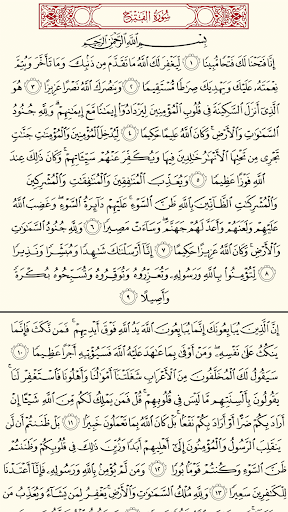 سُورَةُ الفَتْحِ
بِسْمِ ٱللَّهِ ٱلرَّحْمَٰنِ ٱلرَّحِيمِ
إِنَّا فَتَحْنَا لَكَ فَتْحًا مُّبِينًا ١ لِّيَغْفِرَ لَكَ ٱللَّهُ مَا تَقَدَّمَ مِن ذَنۢبِكَ وَمَا تَأَخَّرَ وَيُتِمَّ
نِعْمَتَهُۥ عَلَيْكَ وَيَهْدِيَكَ صِرَٰطًا مُّسْتَقِيمًا ٢ وَيَنصُرَكَ ٱللَّهُ نَصْرًا عَزِيزًا ٣ هُوَ
ٱلَّذِىٓ أَنزَلَ ٱلسَّكِينَةَ فِى قُلُوبِ ٱلْمُؤْمِنِينَ لِيَزْدَادُوٓا۟ إِيمَٰنًا مَّعَ إِيمَٰنِهِمْ ۗ وَلِلَّهِ جُنُودُ
ٱلسَّمَٰوَٰتِ وَٱلْأَرْضِ ۚ وَكَانَ ٱللَّهُ عَلِيمًا حَكِيمًا ٤ لِّيُدْخِلَ ٱلْمُؤْمِنِينَ وَٱلْمُؤْمِنَٰتِ جَنَّٰتٍ
تَجْرِى مِن تَحْتِهَا ٱلْأَنْهَٰرُ خَٰلِدِينَ فِيهَا وَيُكَفِّرَ عَنْهُمْ سَيِّـَٔاتِهِمْ ۚ وَكَانَ ذَٰلِكَ عِندَ
ٱللَّهِ فَوْزًا عَظِيمًا ٥ وَيُعَذِّبَ ٱلْمُنَٰفِقِينَ وَٱلْمُنَٰفِقَٰتِ وَٱلْمُشْرِكِينَ
وَٱلْمُشْرِكَٰتِ ٱلظَّآنِّينَ بِٱللَّهِ ظَنَّ ٱلسَّوْءِ ۚ عَلَيْهِمْ دَآئِرَةُ ٱلسَّوْءِ ۖ وَغَضِبَ ٱللَّهُ
عَلَيْهِمْ وَلَعَنَهُمْ وَأَعَدَّ لَهُمْ جَهَنَّمَ ۖ وَسَآءَتْ مَصِيرًا ٦ وَلِلَّهِ جُنُودُ ٱلسَّمَٰوَٰتِ
وَٱلْأَرْضِ ۚ وَكَانَ ٱللَّهُ عَزِيزًا حَكِيمًا ٧ إِنَّآ أَرْسَلْنَٰكَ شَٰهِدًا وَمُبَشِّرًا وَنَذِيرًا
٨ لِّتُؤْمِنُوا۟ بِٱللَّهِ وَرَسُولِهِۦ وَتُعَزِّرُوهُ وَتُوَقِّرُوهُ وَتُسَبِّحُوهُ بُكْرَةً
وَأَصِيلًا ٩
إِنَّ ٱلَّذِينَ يُبَايِعُونَكَ إِنَّمَا يُبَايِعُونَ ٱللَّهَ يَدُ ٱللَّهِ فَوْقَ أَيْدِيهِمْ ۚ فَمَن نَّكَثَ فَإِنَّمَا
يَنكُثُ عَلَىٰ نَفْسِهِۦ ۖ وَمَنْ أَوْفَىٰ بِمَا عَٰهَدَ عَلَيْهُ ٱللَّهَ فَسَيُؤْتِيهِ أَجْرًا عَظِيمًا ١٠
سَيَقُولُ لَكَ ٱلْمُخَلَّفُونَ مِنَ ٱلْأَعْرَابِ شَغَلَتْنَآ أَمْوَٰلُنَا وَأَهْلُونَا فَٱسْتَغْفِرْ لَنَا ۚ
يَقُولُونَ بِأَلْسِنَتِهِم مَّا لَيْسَ فِى قُلُوبِهِمْ ۚ قُلْ فَمَن يَمْلِكُ لَكُم مِّنَ ٱللَّهِ شَيْـًٔا إِنْ
أَرَادَ بِكُمْ ضَرًّا أَوْ أَرَادَ بِكُمْ نَفْعًۢا ۚ بَلْ كَانَ ٱللَّهُ بِمَا تَعْمَلُونَ خَبِيرًۢا ١١ بَلْ ظَنَنتُمْ أَن لَّن
يَنقَلِبَ ٱلرَّسُولُ وَٱلْمُؤْمِنُونَ إِلَىٰٓ أَهْلِيهِمْ أَبَدًا وَزُيِّنَ ذَٰلِكَ فِى قُلُوبِكُمْ وَظَنَنتُمْ
ظَنَّ ٱلسَّوْءِ وَكُنتُمْ قَوْمًۢا بُورًا ١٢ وَمَن لَّمْ يُؤْمِنۢ بِٱللَّهِ وَرَسُولِهِۦ فَإِنَّآ أَعْتَدْنَا
لِلْكَٰفِرِينَ سَعِيرًا ١٣ وَلِلَّهِ مُلْكُ ٱلسَّمَٰوَٰتِ وَٱلْأَرْضِ ۚ يَغْفِرُ لِمَن يَشَآءُ وَيُعَذِّبُ مَن